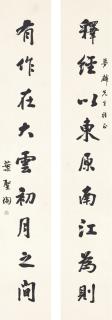 釋經以東原南江為則
夢麟先生雅正
有作在大雲初月之間
葉聖陶